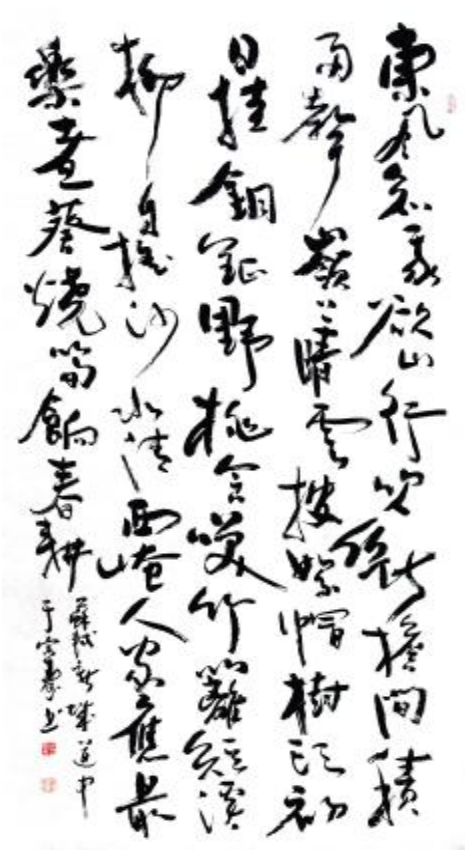 東風知我欲山行吹斷檐間積
雨聲嶺上晴雲披絮帽樹頭初
日挂銅鉦野桃含笑竹籬短溪
柳自搖沙水清西崦人家應最
樂煮葵燒筍餉春耕
蘇軾新城道中